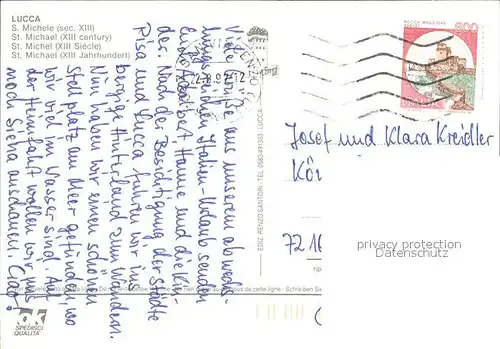 LUCCA
S. Michele (sec. XIII)
St. Michael (XIII century)
St. Michel (XIII Siècle)
St. Michael (XIII Jahrhundert)
Viele Grüße aus unserem abwechs-
lungsreichen Italien-Urlaub senden
Hanne und die Kin-
der. Nach der Besichtigung der Städte
Pisa und Lucca fuhren wir ins
bergige Hinterland zum Wandern.
Nun haben wir einen schönen
Stellplatz am Meer gefunden, wo
wir viel im Wasser sind. Auf
der Heimfahrt wollen wir uns
noch Siena anschauen. Ciao!
EDIZ. RENZO SANTORI - TEL. 0583/491333 LUCCA
500
ITALIA
Josef und Klara Kreidler
72 16
privacy protection
Datenschutz
ok
SPEDISCI
QUALITÀ